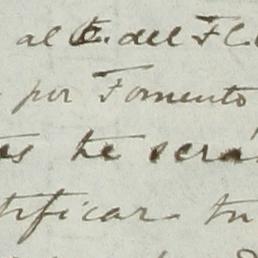 al E. del F.C.
por Fomento
te será
tificar tu